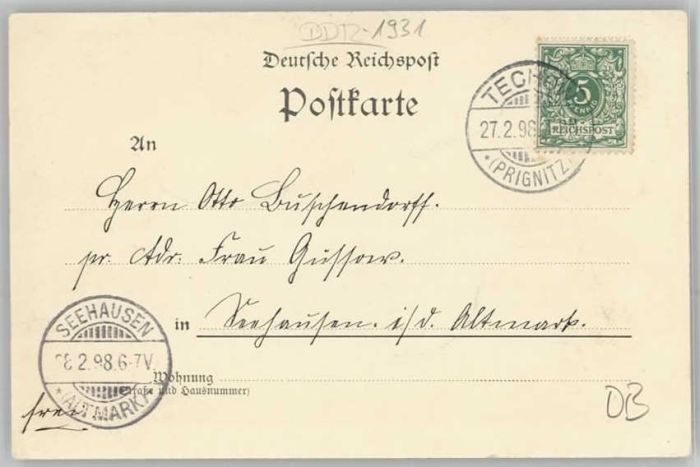 DDR-1931
Deutsche Reichspost
Postkarte
TECH
27.2.98
*(PRIGNITZ)
5
REICHSPOST
An
Herrn Otto Buschendorff.
pr. Adr. Frau Gussow.
in Seehausen. i/d. Altmark.
SEEHAUSEN
8.2.98.6-7V.
*(ALTMARK)
Wohnung
(Straße und Hausnummer)
frei
DB